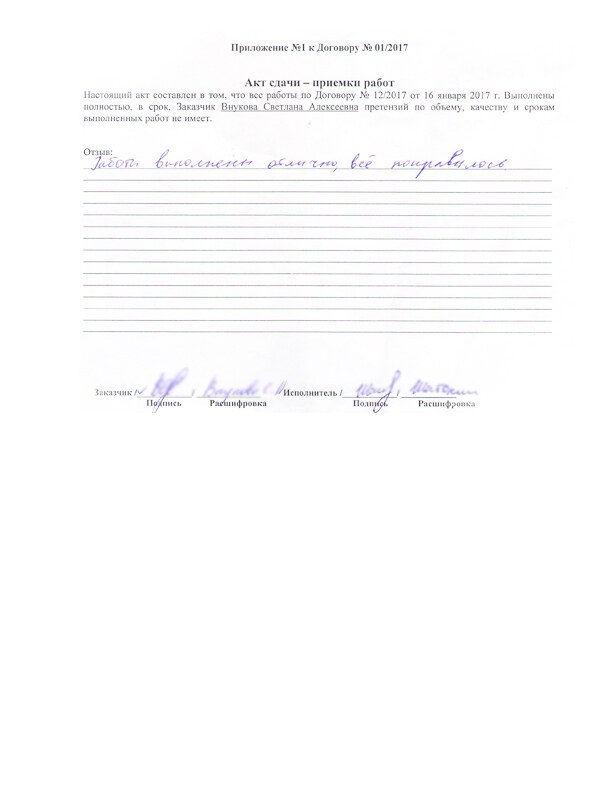 Приложение №1 к Договору № 01/2017
Акт сдачи – приемки работ
Настоящий акт составлен в том, что все работы по Договору № 12/2017 от 16 января 2017 г. Выполнены
полностью, в срок, Заказчик Внукова Светлана Алексеевна претензий по объему, качеству и срокам
выполненных работ не имеет.
Отзыв:
Работы выполнены отлично, всё понравилось
Заказчик / / Исполнитель / /
Подпись Расшифровка Подпись Расшифровка